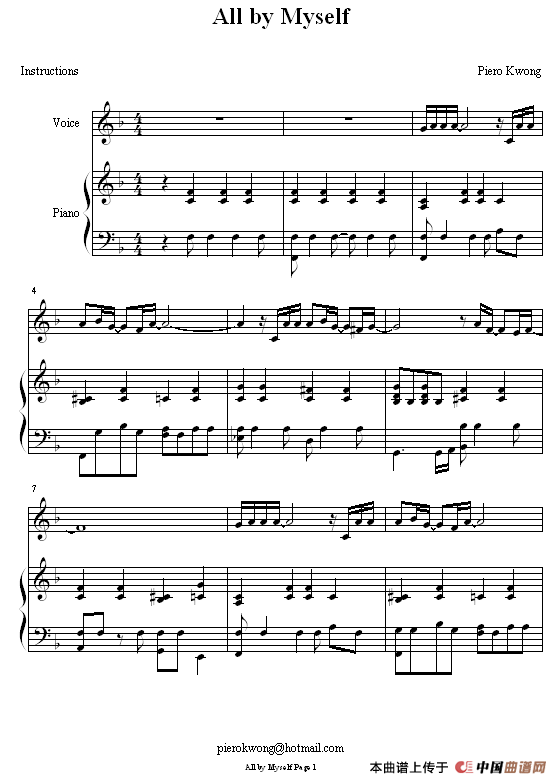 All by Myself
Instructions
Piero Kwong
Voice
Piano
4
7
pierokwong@hotmail.com
All by Myself Page 1
本曲谱上传于 中国曲谱网